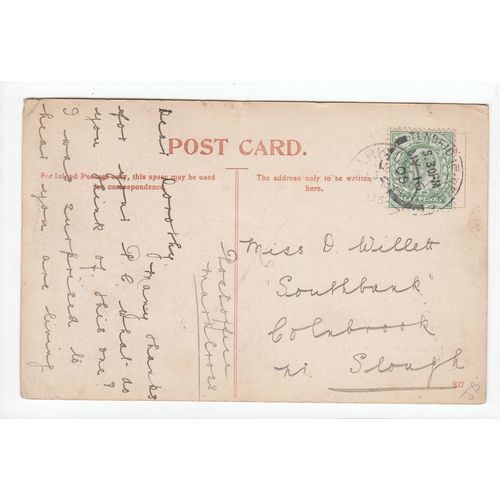 POST CARD.
For Inland Postage only, this space may be used
for correspondence.
The address only to be written
here.
Dear Dorothy,
Many thanks
for your P.C. What do
you think of this one?
I was surprised to
hear you are living
Postoffice
Mark Cross
Miss D. Willett
"Southbank"
Colnbrook
nr. Slough
837